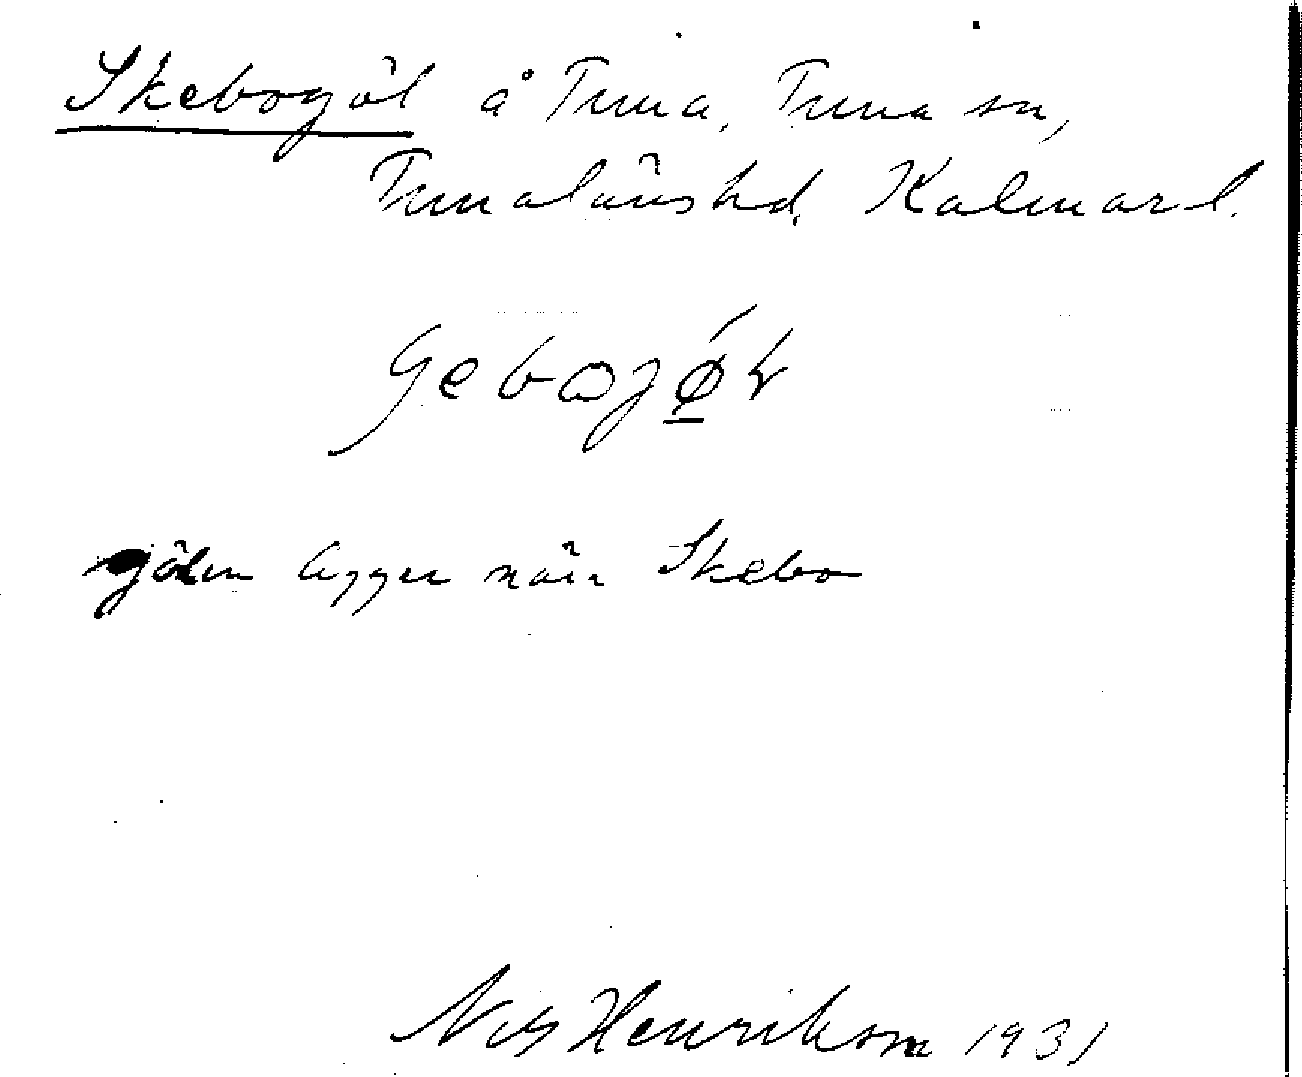 Skebogöl å Tuna, Tuna sn,
Tunalänshd, Kalmar l.
gölen ligger när Skebo
Nils Henrikson 1931